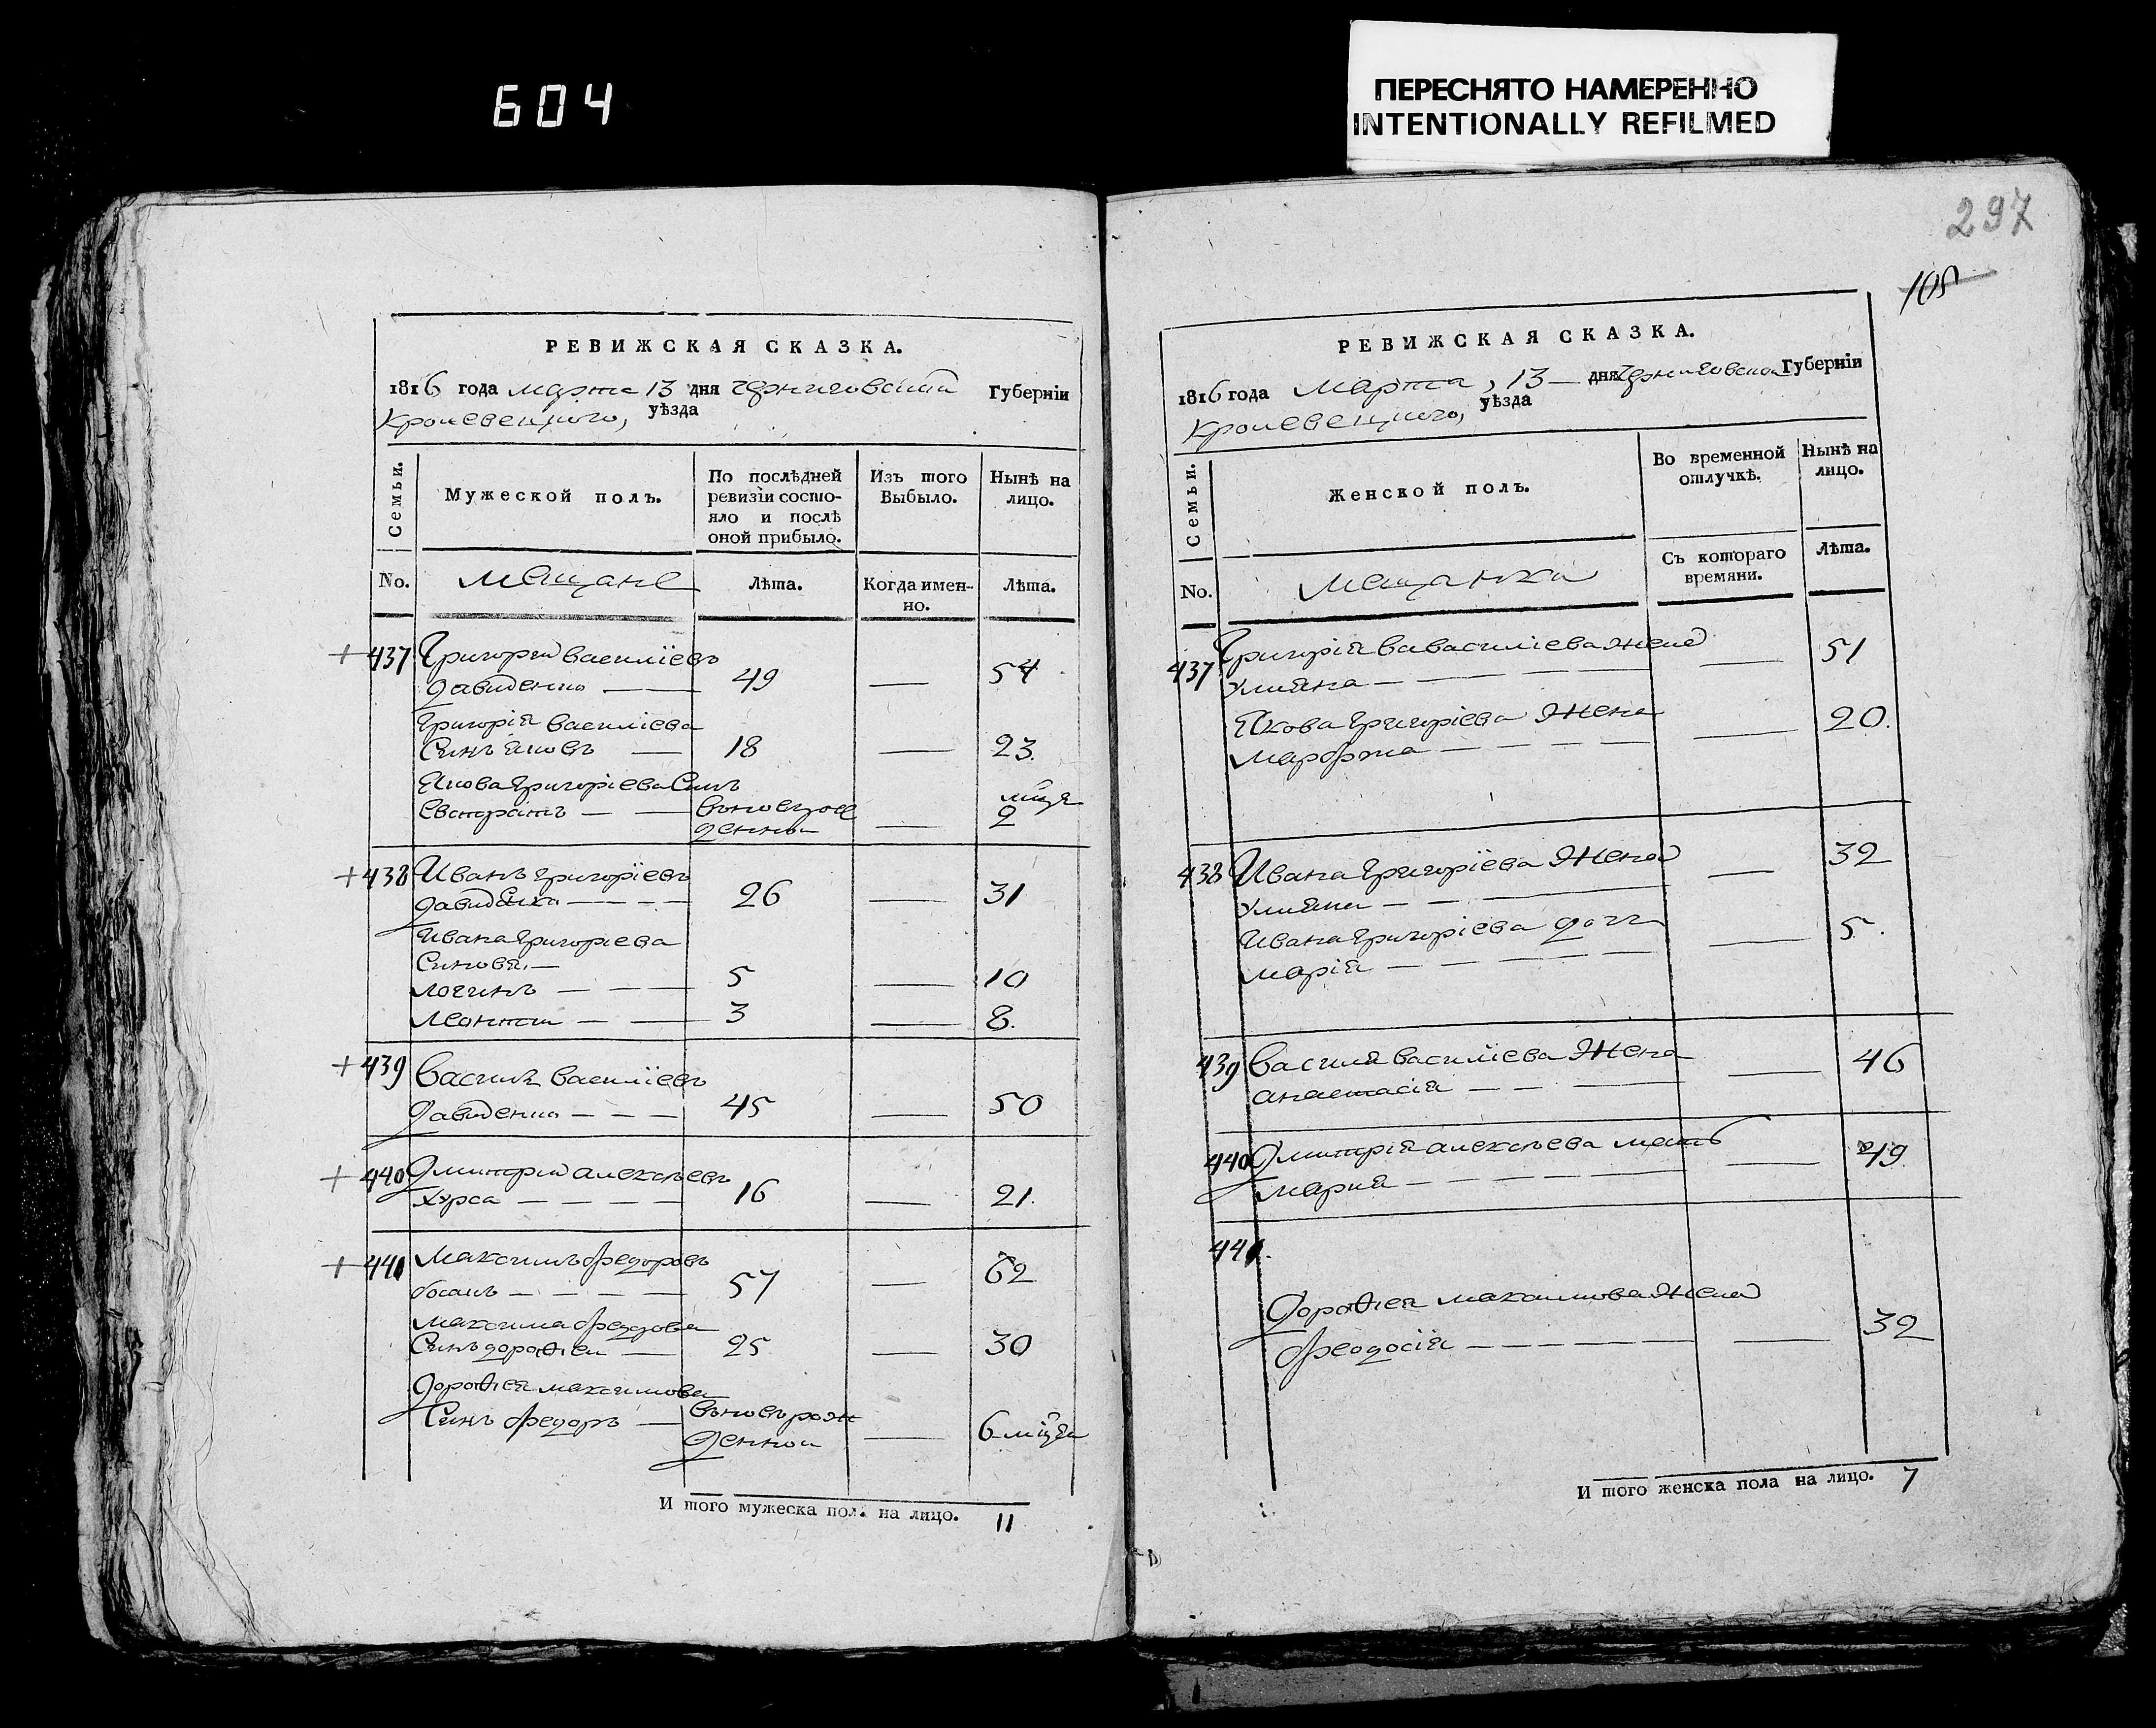 604
ПЕРЕСНЯТО НАМЕРЕННО
INTENTIONALLY REFILMED
РЕВИЖСКАЯ СКАЗКА.
1816 года марта 13 дня Черниговской Губерніи
Кролевецкого, уѣзда
Семьи.
Мужеской полъ.
По послѣдней ревизіи состо-
яло и послѣ оной прибыло.
Изъ того Выбыло.
Нынѣ на лицо.
No.
мещане
Лѣта.
Когда имен-
но.
Лѣта.
+ 437 Григорий Василіевъ
Давиденко — 49 — 54
Григорія Василіева
Синъ Яковъ — 18 — 23.
Якова Григоріева Синъ
Евстратъ — вьновьрож
денной — 2
+ 438 Иванъ Григоріевъ
Давиденко — 26 — 31
Ивана Григоріева
Синовя —
Логинъ — 5 — 10
Леонтий — 3 — 8.
+ 439 Василъ Василіевъ
Давиденко — 45 — 50
+ 440 Дмитрий Алексѣевъ
Хурса — 16 — 21.
+ 441 Максимъ Федоровъ
Босакъ — 57 — 62
Максима Федорова
Синъ Дорофей — 25 — 30
Дорофея Максимова
Синъ Федоръ — вьновьрож
денной — 6 мцей
И того мужеска пола на лицо. 11
297
105
РЕВИЖСКАЯ СКАЗКА.
1816 года Марта, 13 дня Черниговской Губерніи
Кролевецкого, уѣзда
Семьи.
Женской полъ.
Во временной отлучкѣ.
Нынѣ на лицо.
No.
Мещанки
Съ котораго времяни.
Лѣта.
437 Василіева Жена
Улияна — 51
Якова Григоріева Жена
Марфа — 20.
438 Ивана Григоріева Жена
Улияна — 32
Ивана Григоріева дочь
Марія — 5.
439 Василя Василіева Жена
Анастасія — 46
440 Дмитрія Алексѣева мать
Мария — 49.
441.
Дорофея Максимова Жена
Феодосія — 32
И того женска пола на лицо. 7